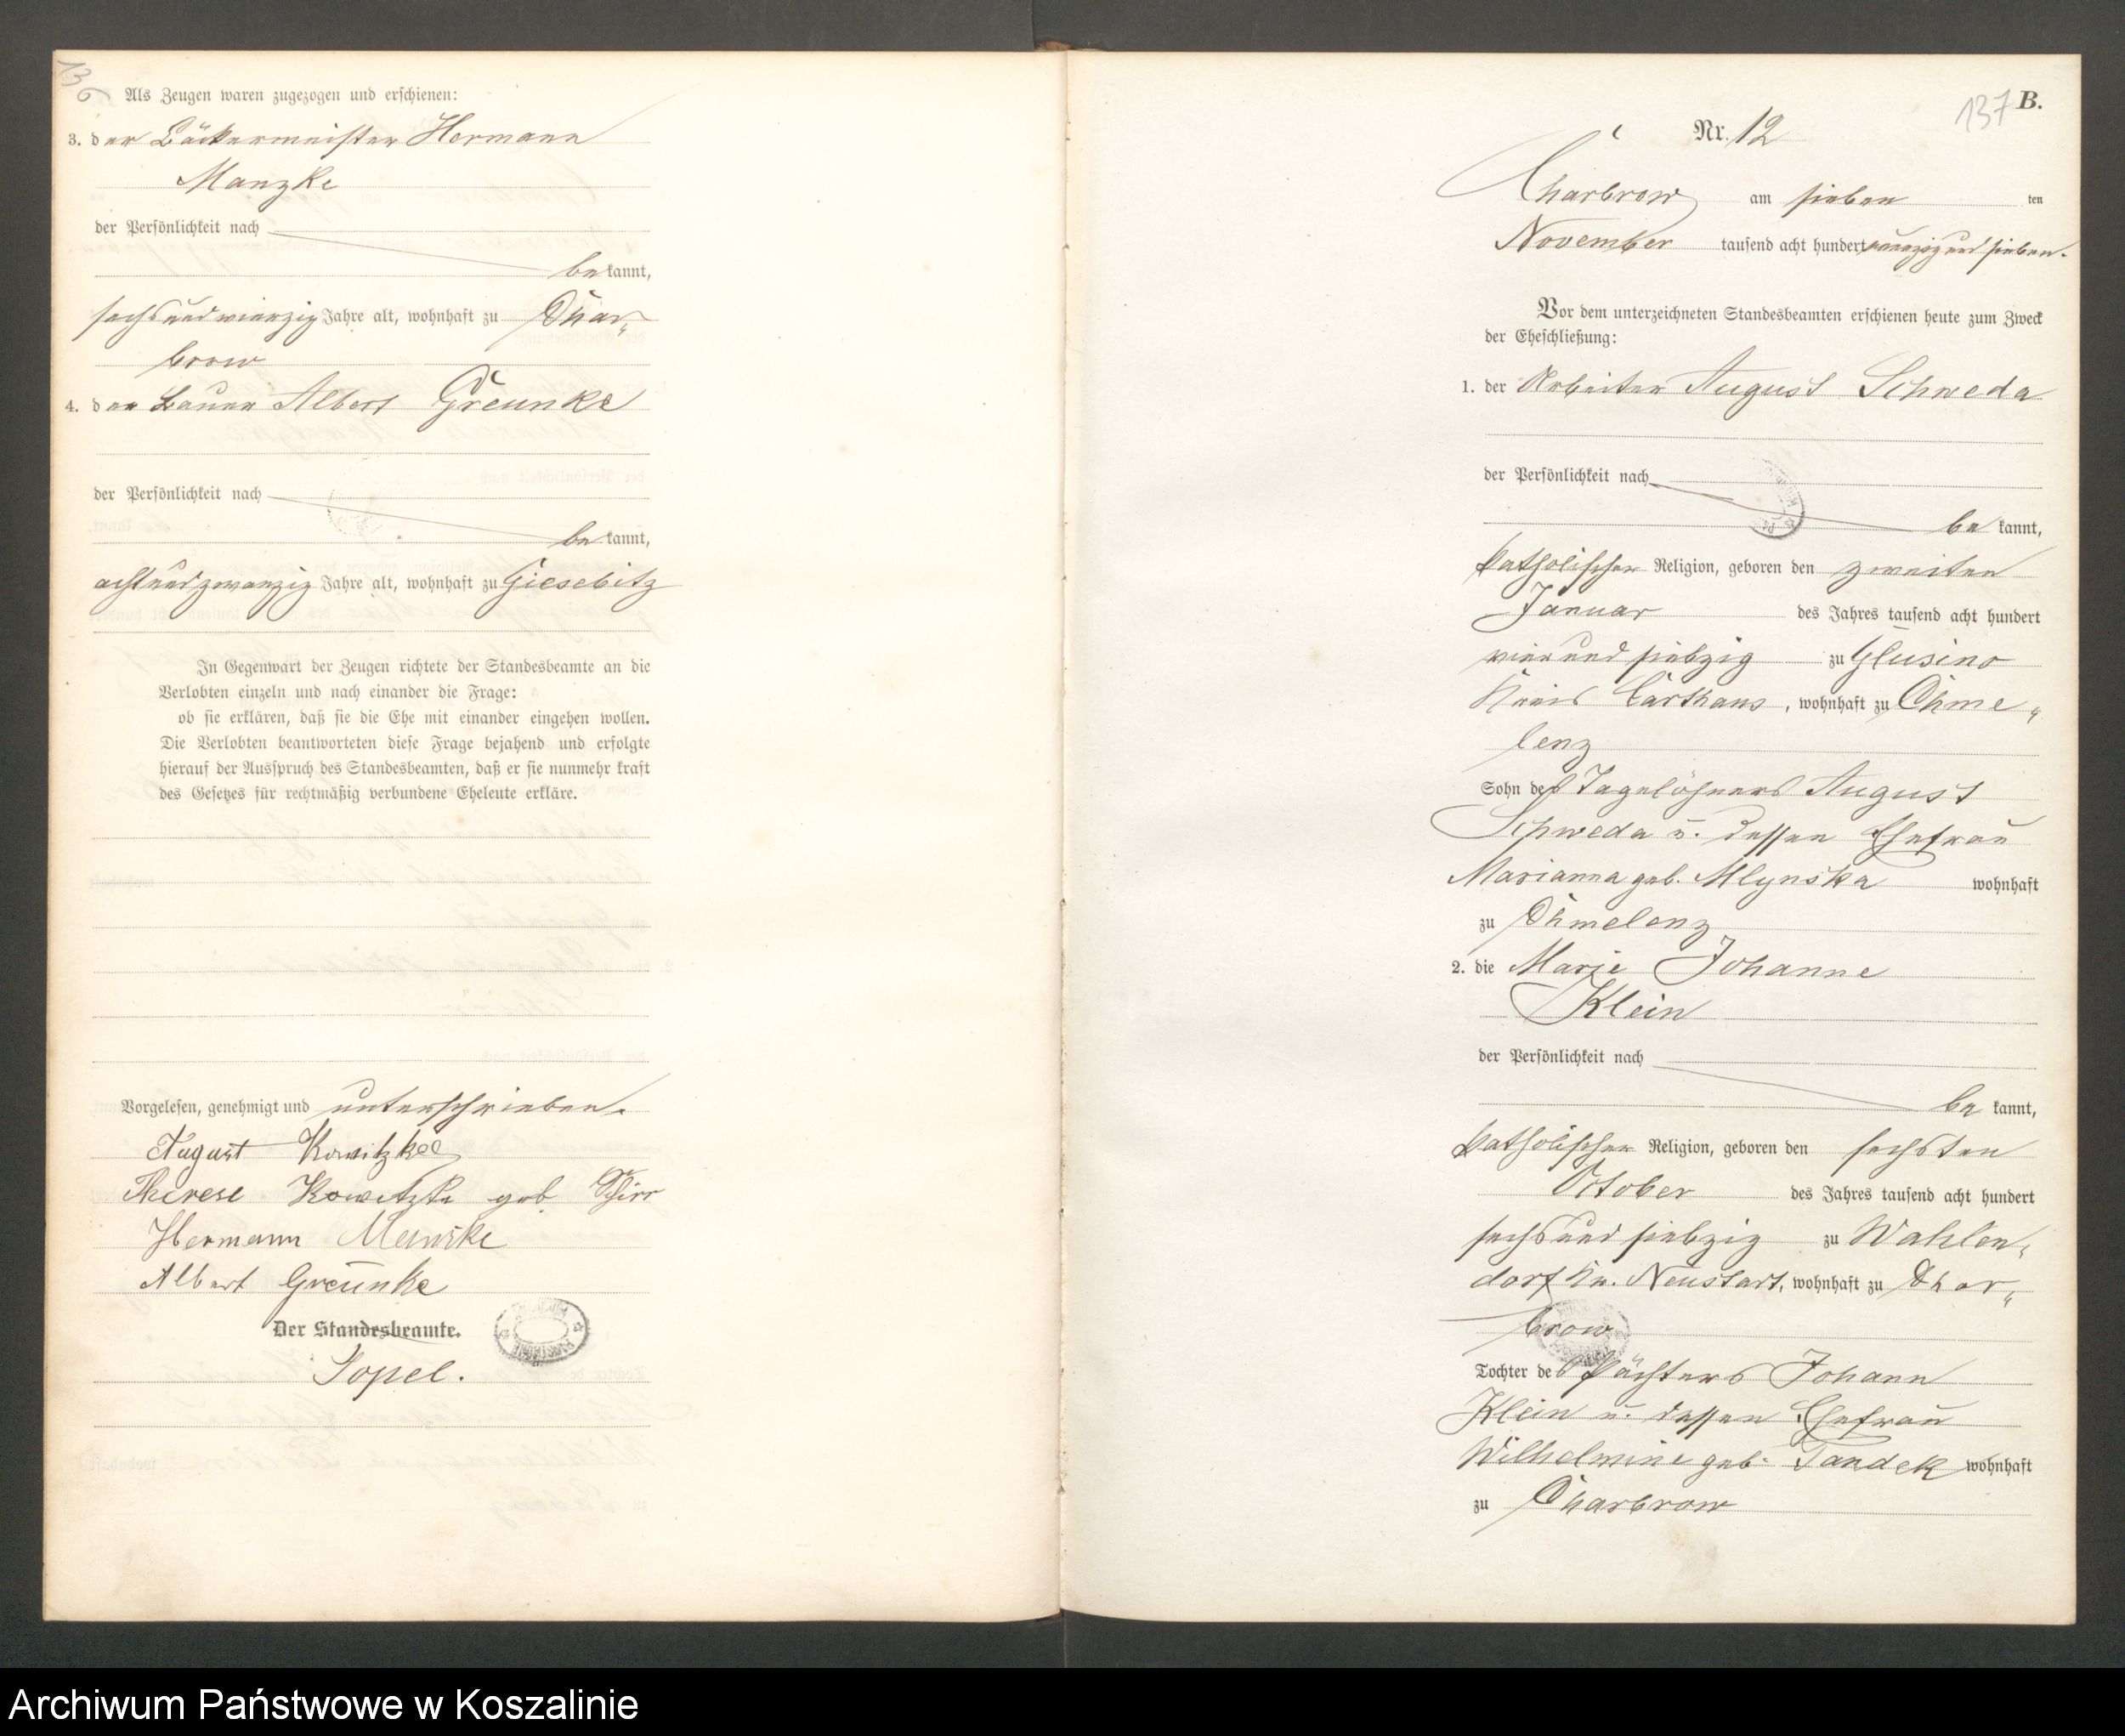 136
Als Zeugen waren zugezogen und erschienen:
3. der Bäckermeister Hermann
Manzke
der Persönlichkeit nach
bekannt,
sechsundvierzig Jahre alt, wohnhaft zu Char„
brow
4. der Bauer Albert Greunke
der Persönlichkeit nach
bekannt,
achtundzwanzig Jahre alt, wohnhaft zu Giesebitz
In Gegenwart der Zeugen richtete der Standesbeamte an die
Verlobten einzeln und nach einander die Frage:
ob sie erklären, daß sie die Ehe mit einander eingehen wollen.
Die Verlobten beantworteten diese Frage bejahend und erfolgte
hierauf der Ausspruch des Standesbeamten, daß er sie nunmehr kraft
des Gesetzes für rechtmäßig verbundene Eheleute erkläre.
Vorgelesen, genehmigt und unterschrieben.
August Kowitzke
Therese Kowitzke geb. Schirr
Hermann Manzke
Albert Greunke
Der Standesbeamte.
Sopel.
137 B.
Nr. 12
Charbrow am sieben ten
November tausend acht hundert neunzig und sieben.
Vor dem unterzeichneten Standesbeamten erschienen heute zum Zweck
der Eheschließung:
1. der Arbeiter August Schweda
der Persönlichkeit nach
bekannt,
katholischer Religion, geboren den zweiten
Januar des Jahres tausend acht hundert
vier und siebzig zu Glusino
Kreis Carthaus, wohnhaft zu Chme„
lenz
Sohn des Tagelöhners August
Schweda u. dessen Ehefrau
Marianna geb. Mlynska wohnhaft
zu Chmelenz
2. die Marie Johanne
Klein
der Persönlichkeit nach
bekannt,
katholischer Religion, geboren den sechsten
October des Jahres tausend acht hundert
sechs und siebzig zu Wahlen„
dorf Kr. Neustadt, wohnhaft zu Char„
brow
Tochter des Pächters Johann
Klein u. dessen Ehefrau
Wilhelmine geb. Tandek wohnhaft
zu Charbrow
Archiwum Państwowe w Koszalinie